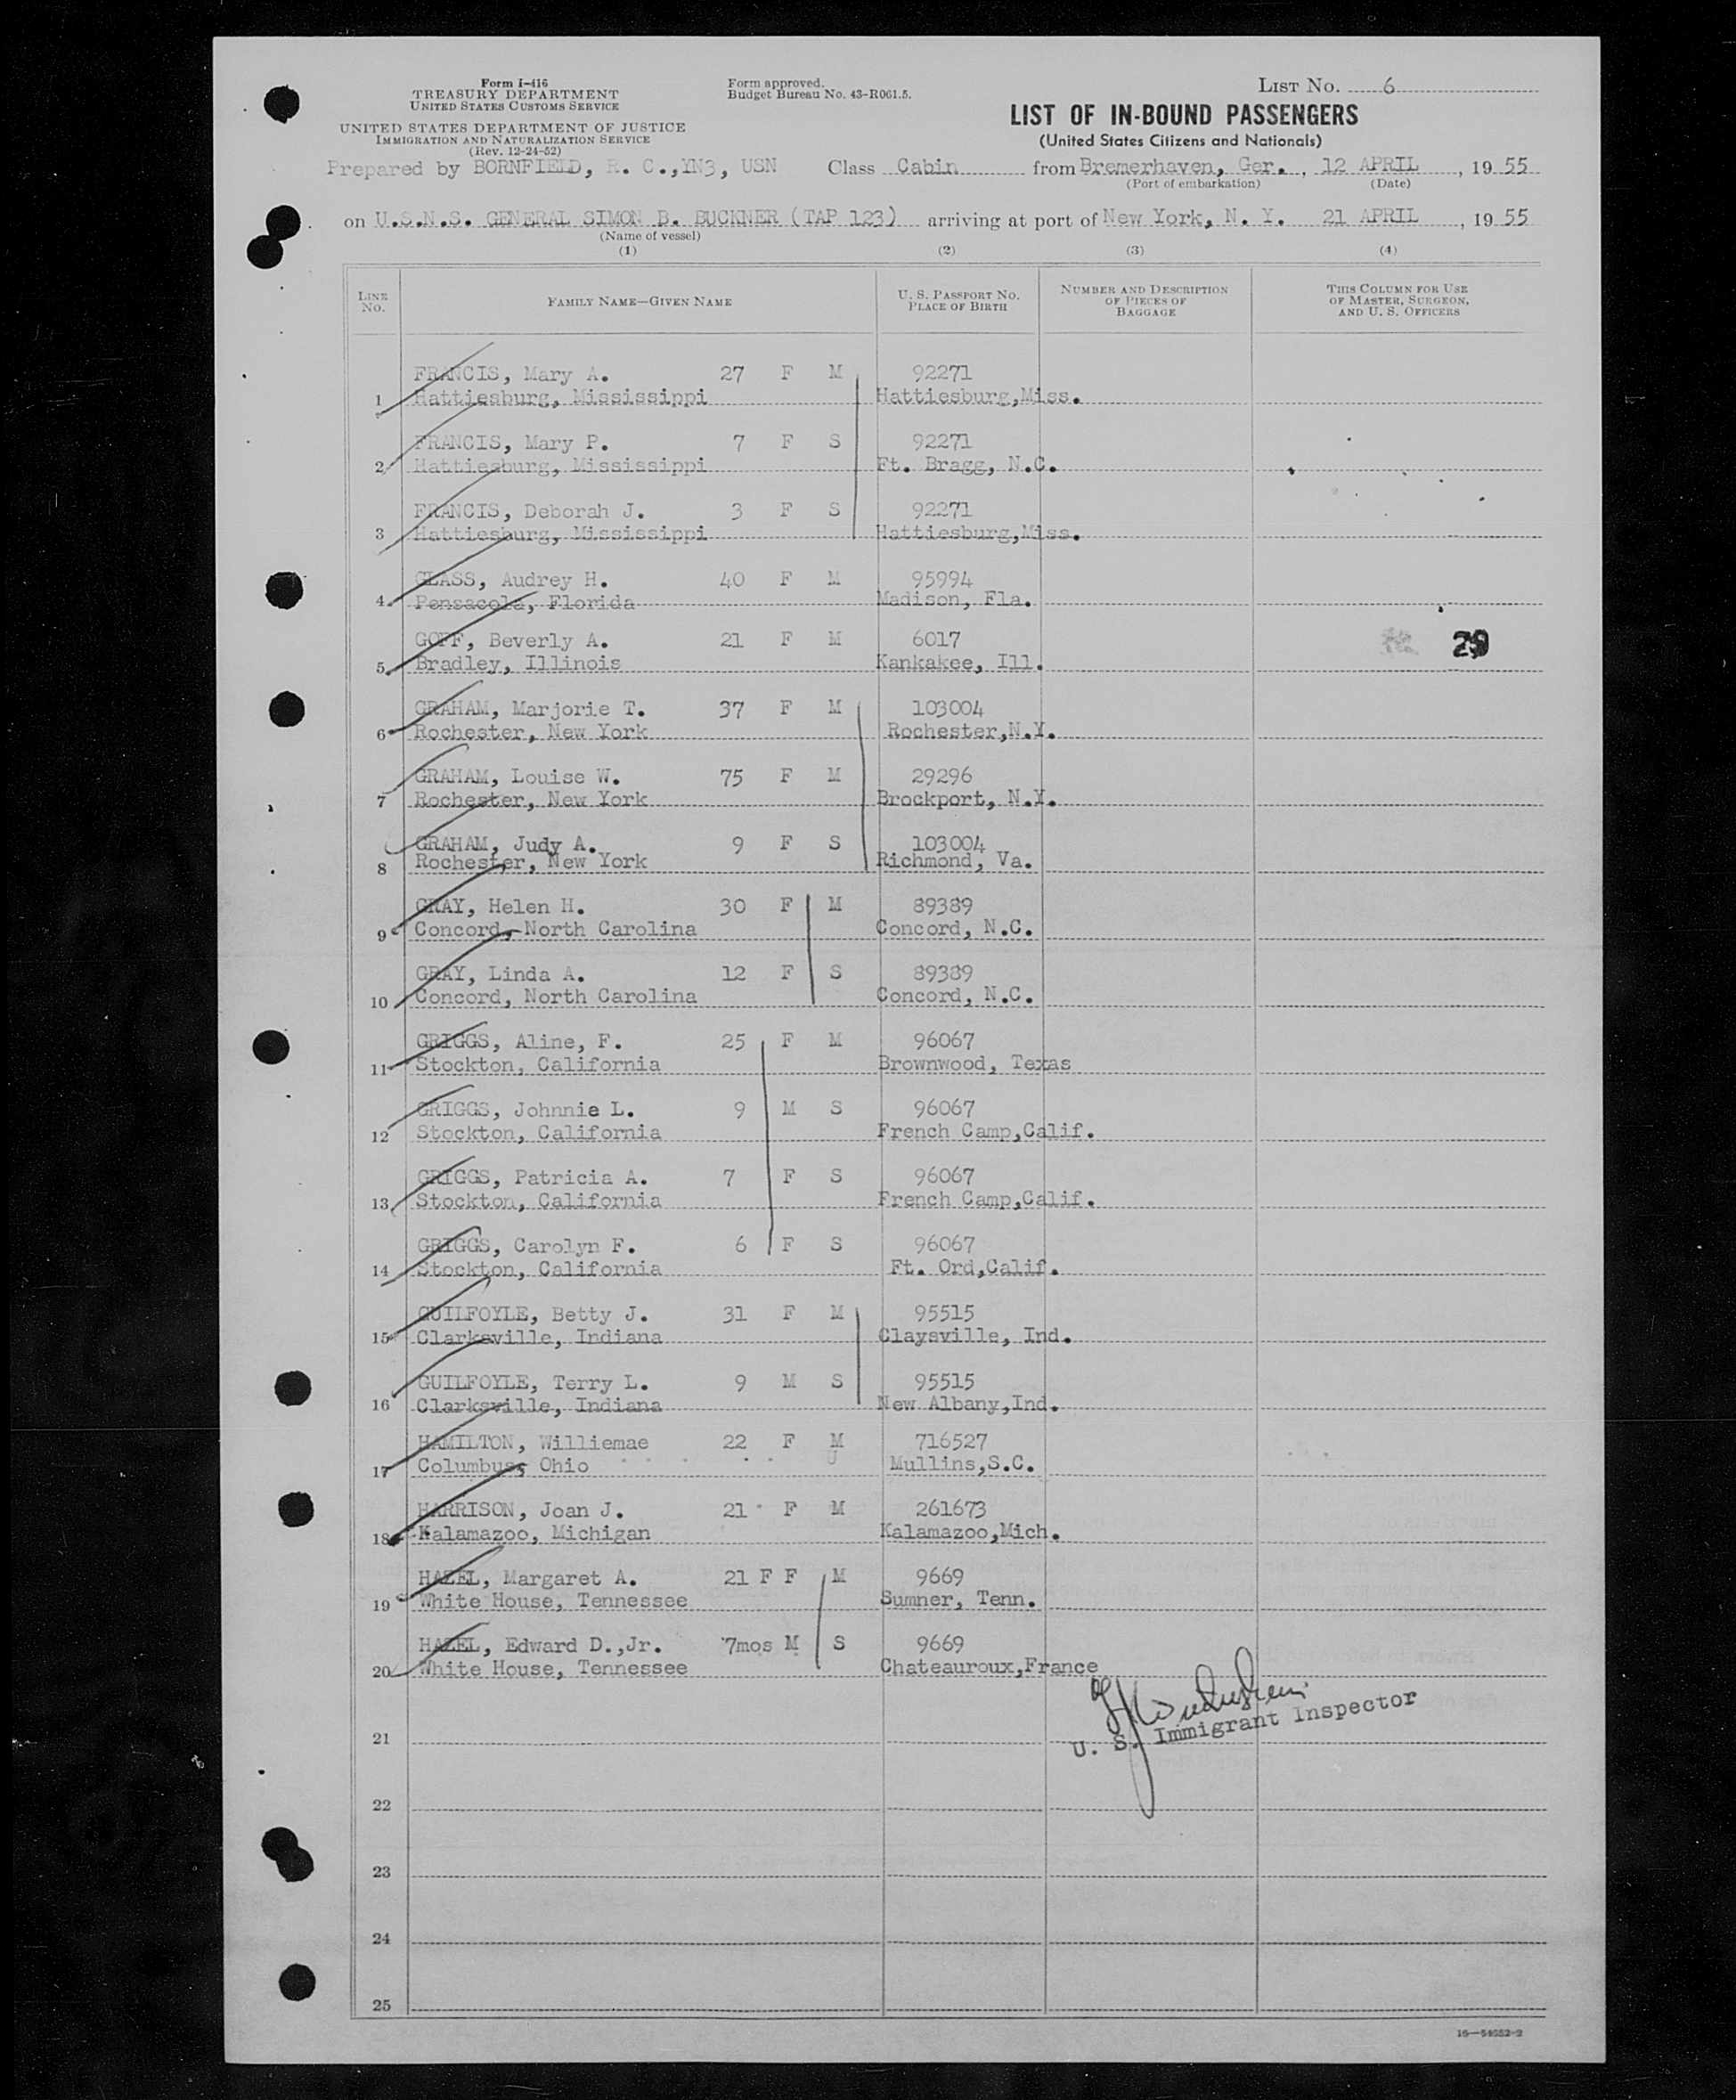 Form I-416
TREASURY DEPARTMENT
UNITED STATES CUSTOMS SERVICE
Form approved.
Budget Bureau No. 43-R061.5.
LIST NO. 6
UNITED STATES DEPARTMENT OF JUSTICE
IMMIGRATION AND NATURALIZATION SERVICE
(Rev. 12-24-52)
LIST OF IN-BOUND PASSENGERS
(United States Citizens and Nationals)
Prepared by BORNFIELD, R. C.,YN3, USN Class Cabin from Bremerhaven, Ger., 12 APRIL, 19 55
(Port of embarkation) (Date)
on U.S.N.S. GENERAL SIMON B. BUCKNER (TAP 123) arriving at port of New York, N. Y. 21 APRIL, 19 55
(Name of vessel)
(1) (2) (3) (4)
LINE NO. FAMILY NAME—GIVEN NAME U. S. PASSPORT NO. PLACE OF BIRTH NUMBER AND DESCRIPTION OF PIECES OF BAGGAGE THIS COLUMN FOR USE OF MASTER, SURGEON, AND U. S. OFFICERS
FRANCIS, Mary A. 27 F M 92271
1 Hattiesburg, Mississippi Hattiesburg,Miss.
FRANCIS, Mary P. 7 F S 92271
2 Hattiesburg, Mississippi Ft. Bragg, N.C.
FRANCIS, Deborah J. 3 F S 92271
3 Hattiesburg, Mississippi Hattiesburg,Miss.
GLASS, Audrey H. 40 F M 95994
4 Pensacola, Florida Madison, Fla.
GOFF, Beverly A. 21 F M 6017 29
5 Bradley, Illinois Kankakee, Ill.
GRAHAM, Marjorie T. 37 F M 103004
6 Rochester, New York Rochester,N.Y.
GRAHAM, Louise W. 75 F M 29296
7 Rochester, New York Brockport, N.Y.
GRAHAM, Judy A. 9 F S 103004
8 Rochester, New York Richmond, Va.
GRAY, Helen H. 30 F M 89389
9 Concord, North Carolina Concord, N.C.
GRAY, Linda A. 12 F S 89389
10 Concord, North Carolina Concord, N.C.
GRIGGS, Aline, F. 25 F M 96067
11 Stockton, California Brownwood, Texas
GRIGGS, Johnnie L. 9 M S 96067
12 Stockton, California French Camp,Calif.
GRIGGS, Patricia A. 7 F S 96067
13 Stockton, California French Camp,Calif.
GRIGGS, Carolyn F. 6 F S 96067
14 Stockton, California Ft. Ord,Calif.
GUILFOYLE, Betty J. 31 F M 95515
15 Clarksville, Indiana Claysville, Ind.
GUILFOYLE, Terry L. 9 M S 95515
16 Clarksville, Indiana New Albany,Ind.
HAMILTON, Williemae 22 F M 716527
17 Columbus, Ohio U Mullins,S.C.
HARRISON, Joan J. 21 F M 261673
18 Kalamazoo, Michigan Kalamazoo,Mich.
HAZEL, Margaret A. 21 F F M 9669
19 White House, Tennessee Sumner, Tenn.
HAZEL, Edward D.,Jr. 7mos M S 9669
20 White House, Tennessee Chateauroux,France
U. S. Immigrant Inspector
21
22
23
24
25